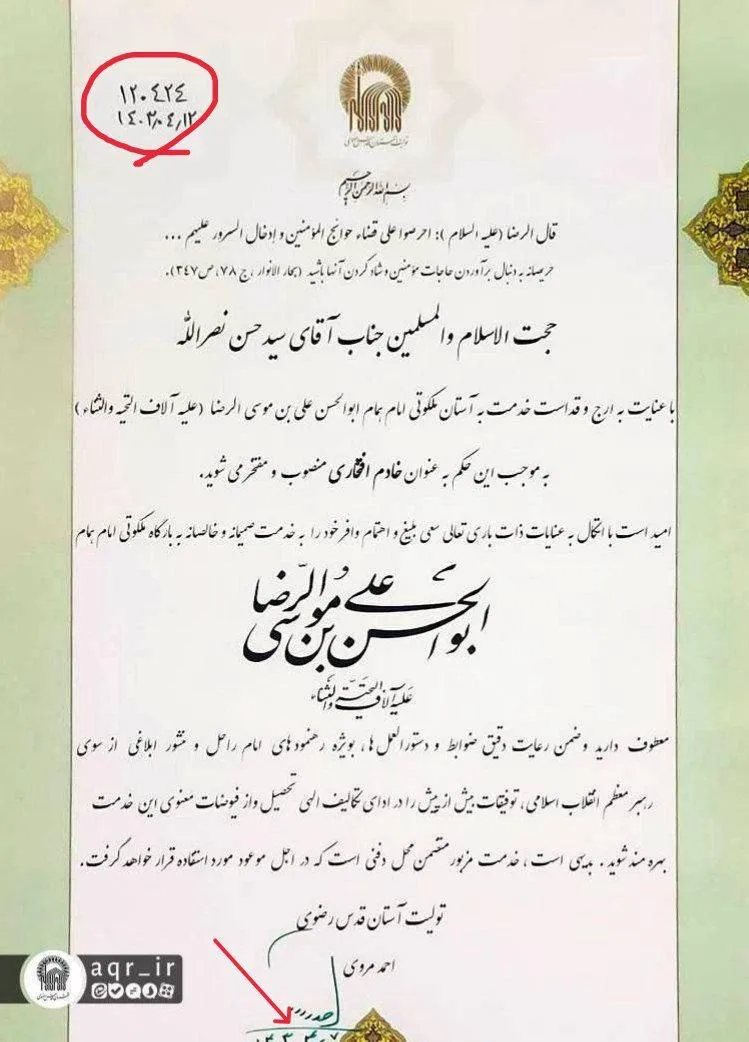 ۱۲۰٤۲٤
۱٤۰۳٫۰٤٫۱۲
تولیت آستان قدس رضوی
بسم الله الرحمن الرحیم
قال الرضا (علیه السلام ): احرصوا علی قضاء حوائج المؤمنین و إدخال السرور علیهم ...
حریصانه به دنبال برآوردن حاجات مؤمنین و شاد کردن آنها باشید (بحار الانوار ، ج ۷۸، ص ۳۴۷).
حجت الاسلام والمسلمین جناب آقای سید حسن نصرالله
با عنایت به ارج و قداست خدمت به آستان ملکوتی امام همام ابوالحسن علی بن موسی الرضا (علیه آلاف التحیه والثناء )
به موجب این حکم به عنوان خادم افتخاری منصوب و مفتخر می شوید.
امید است با اتکال به عنایات ذات باری تعالی سعی بلیغ و اهتمام وافر خود را به خدمت صمیمانه و خالصانه به بارگاه ملکوتی امام همام
ابوالحسن علی بن موسی الرضا
علیه آلاف التحیة والثناء
معطوف دارید وضمن رعایت دقیق ضوابط و دستورالعمل ها، بویژه رهنمودهای امام راحل و منشور ابلاغی از سوی
رهبر معظم انقلاب اسلامی، توفیقات بیش از پیش را در ادای تکالیف الهی تحصیل واز فیوضات معنوی این خدمت
بهره مند شوید . بدیهی است ، خدمت مزبور متضمن محل دفنی است که در اجل موعود مورد استفاده قرار خواهد گرفت.
تولیت آستان قدس رضوی
احمد مروی
aqr_ir